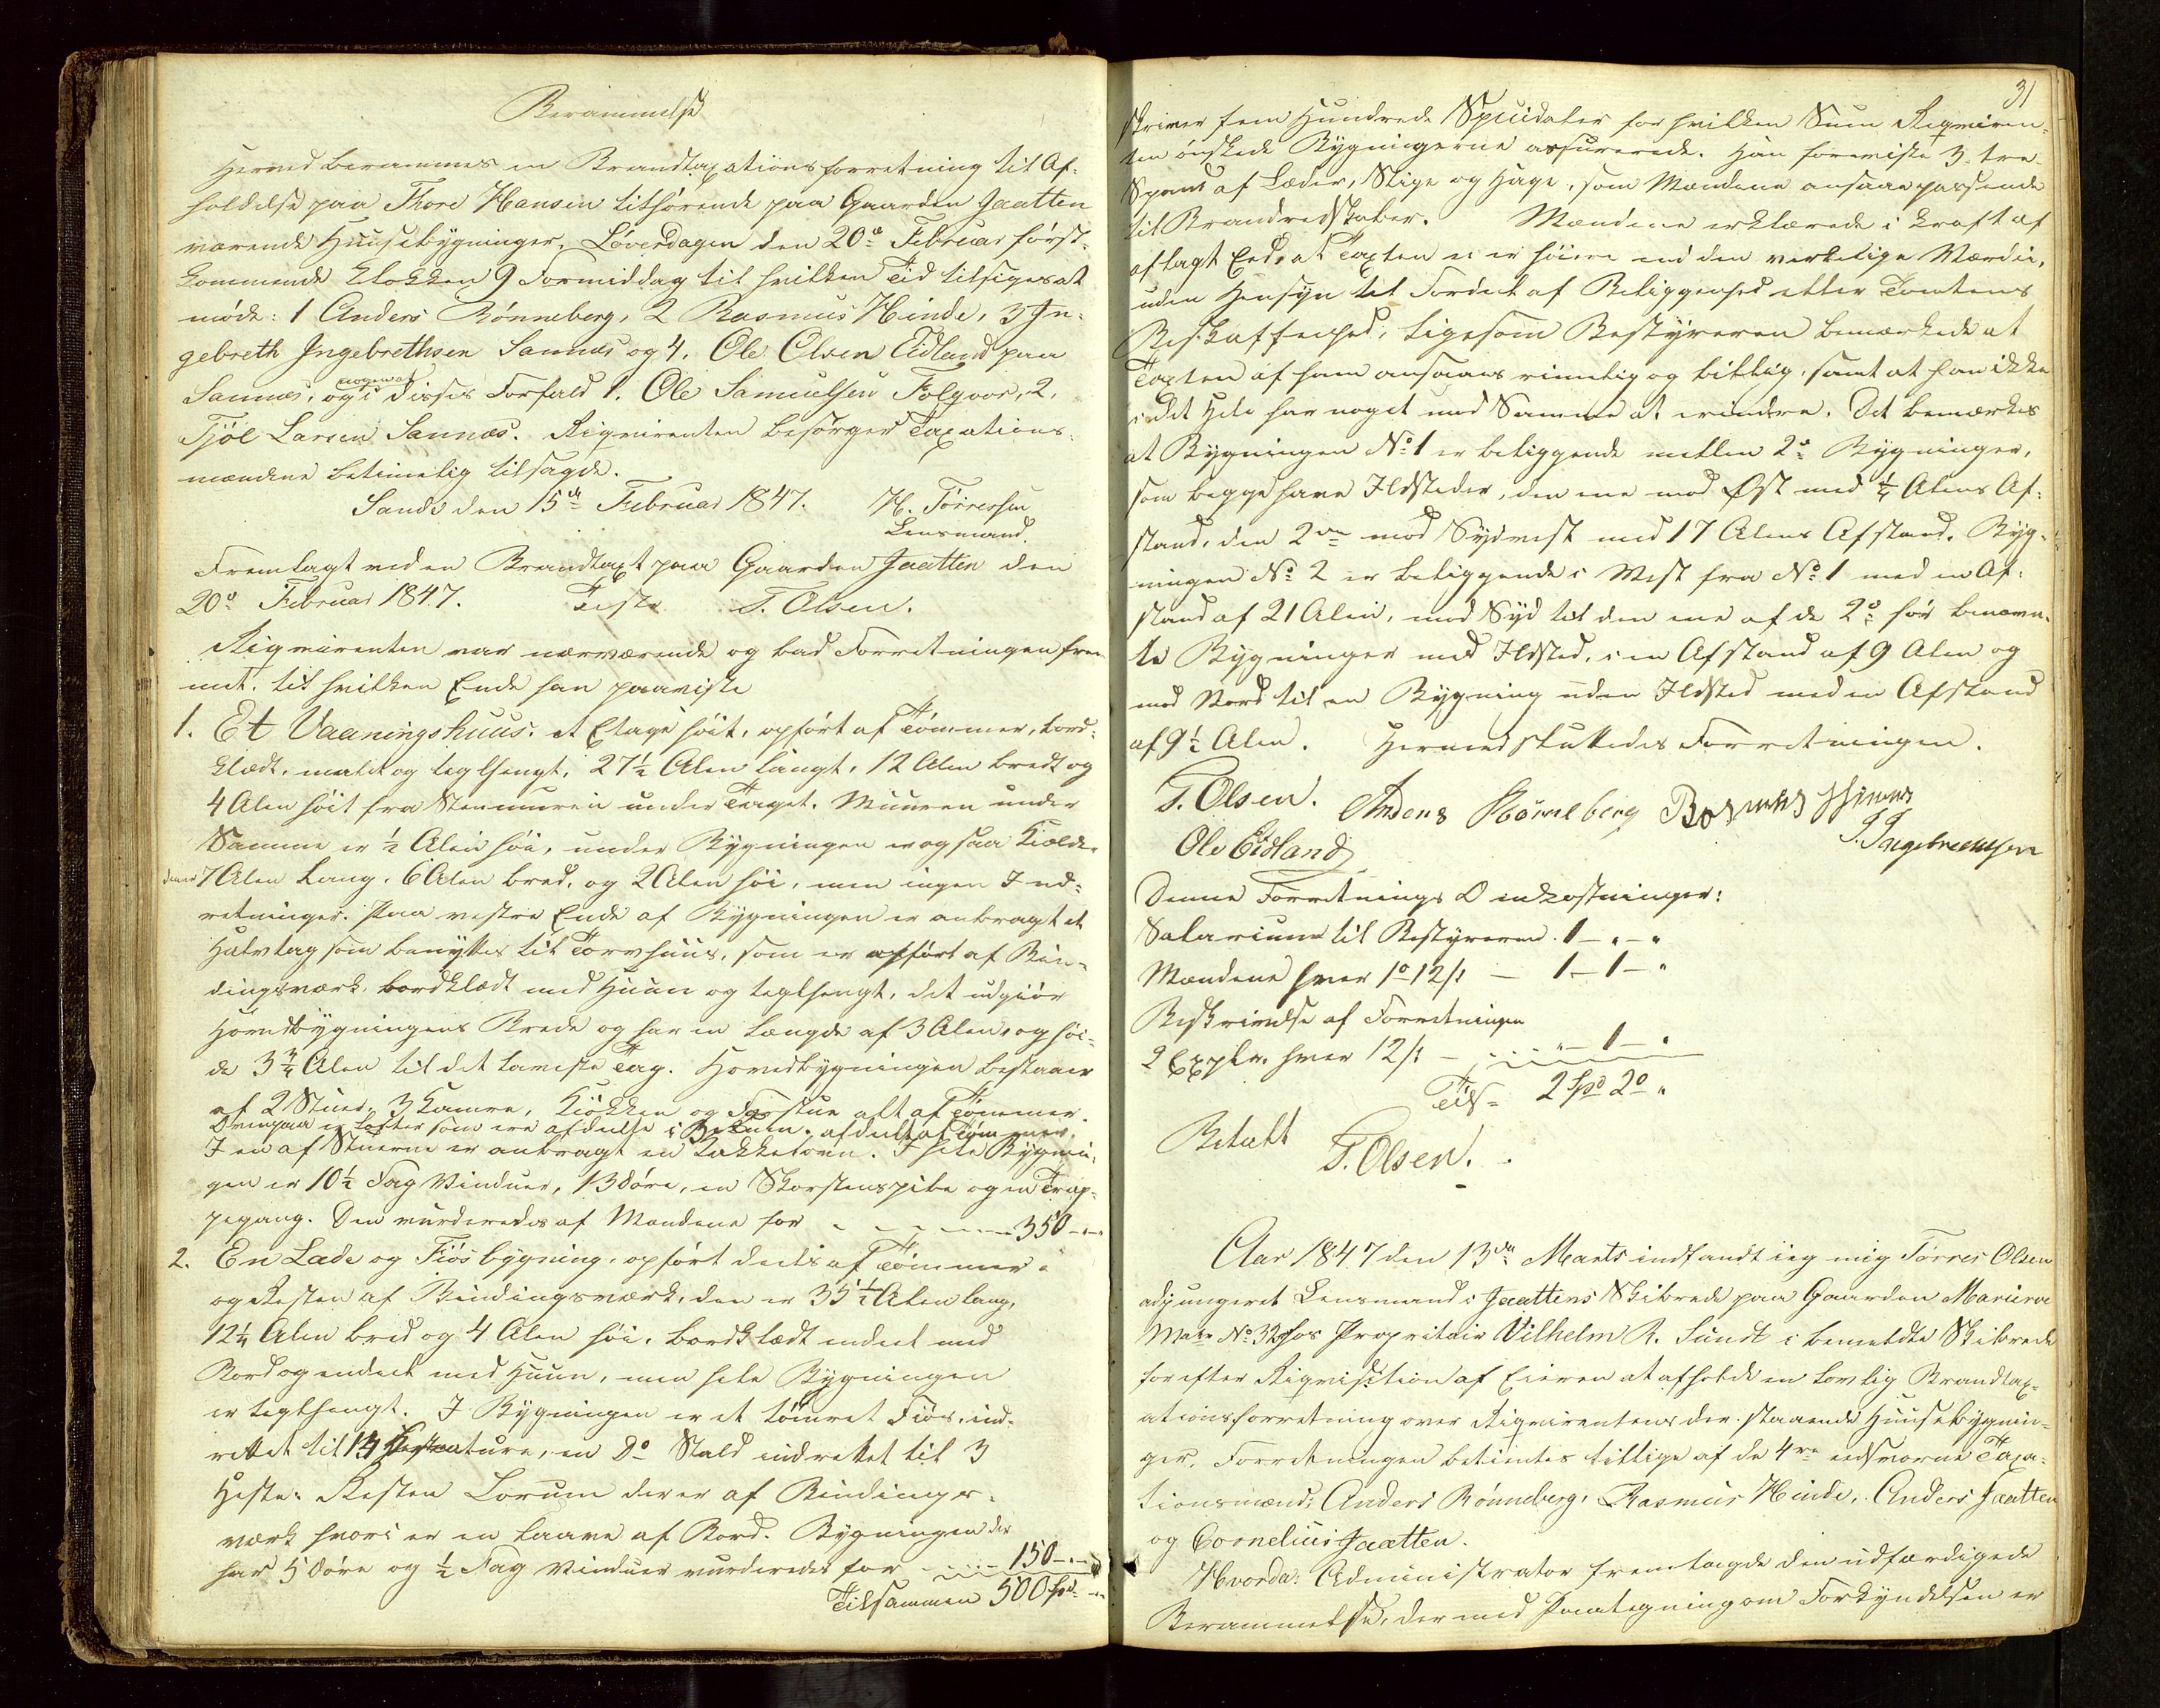 Berammelse
Herved berammes en Brandtaxationsforretning til Af-
holdelse paa Thore Hansen tilhørende paa Gaarden Jaatten
værende Huusebygninger, Løverdagen den 20de Februar først-
kommende Klokken 9 Formiddag til hvilken Tid tilsiges at
møde: 1 Anders Rønneberg, 2 Rasmus Hinde, 3 In-
gebreth Ingebrethsen Sannæs og 4. Ole Olsen Eidland paa
Sannæs, og i nogen af Disses Forfald 1. Ole Samuelsen Folgvor, 2,
Tjøl Larsen Sannæs. Reqvirenten besørger Taxations-
mændene betimelig tilsagde.
Sande den 15de Februar 1847. H. Tørressen
Lensmand.
Fremlagt ved en Brandtaxt paa Gaarden Jaatten den
20de Februar 1847. Teste T. Olsen.
Reqvirenten var nærværende og bad Forretningen frem-
met, til hvilken Ende han paaviste
1. Et Vaaningshuus, et Etage høit, opført af Tømmer, bord-
klædt, malet og teglhengt, 27½ Alen langt, 12 Alen bredt og
4 Alen høit fra Steenmuren under Taget. Muuren under
Samme er ½ Alen høi, under Bygningen er ogsaa Kielder
denne 7 Alen lang, 6 Alen bred, og 2 Alen høi, men ingen Ind-
retninger. Paa vestre Ende af Bygningen er anbragt et
Halvtag som benyttes til Torvhuus, som er opført af Bin-
dingsværk, bordklædt med Huun og teglhengt, det udgiør
Hovedbygningens Brede og har en Længde af 3 Alen, og Høi-
de 3¾ Alen til det laveste Tag. Hovedbygningen bestaaer
af 2 Stuer, 3 Kamre, Kiøkken og Forstue alt af Tømmer.
Ovenpaa er Lofter som ere afdeelte i 3 Rum, afdeelt af Tømmer.
I en af Stuerne er anbragt en Kakkelovn. I hele Bygnin-
gen er 10½ Fag Vinduer, 13 Døre, en Skorsteenspibe og en Trap-
pegang. Den vurderedes af Mændene for - - - - 350 - " - "
2. En Lade og Fiøsbygning, opført deels af Tømmer
og Resten af Bindingsværk, den er 35½ Alen lang,
12¼ Alen bred og 4 Alen høi, bordklædt endeel med
Bord og endeel med Huun, men hele Bygningen
er teglhengt. I Bygningen er et tømret Fiøs, ind-
rettet til 14 Kreature, en Do Stald indrettet til 3
Heste. Resten Lorum der er af Bindings-
værk hvori er en Laave af Bord. Bygningen der
har 5 Døre og ½ Fag Vinduer vurderedes for - - - 150 - " - "
Tilsammen 500 Spd - "
31
skriver fem Hundrede Speciedaler for hvilken Sum Reqviren-
ten ønskede Bygningerne assurerede. Han foreviste 3. tre
Spand af Læder, Stige og Hage, som Mændene ansaae passende
til Brandredskaber. Mændene erklærede i Kraft af
aflagt Eed, at Taxten ei er høiere end den virkelige Værdie,
uden Hensyn til Fordeel af Beliggenhed eller Tomtens
Beskaffenhed, ligesom Bestyreren bemærkede at
Taxten af ham ansaaes rimelig og billig, samt at han ikke
i det Hele har noget mod Samme at erindre. Det bemærkes
at Bygningen No 1 er beliggende mellem 2de Bygninger,
som begge have Ildsteder, den ene mod Øst med ¼ Alens Af-
stand, den 2den mod Sydvest med 17 Alens Afstand. Byg-
ningen No 2 er beliggende i Vest fra No 1 med en Af-
stand af 21 Alen, mod Syd til den ene af de 2de før benævn-
te Bygninger med Ildsted, i en Afstand af 9 Alen og
mod Nord til en Bygning uden Ildsted med en Afstand
af 9½ Alen. Hermed sluttedes Forretningen.
T. Olsen. Anders Rønneberg Rasmus Hinne
Ole Eidland I. Ingebrethsen
Denne Forretnings Omkostninger:
Salarium til Bestyreren 1 - " - "
Mændene hver 1 o 12 s - 1 - 1 - "
Beskrivelse af Forretningen
2 Explr. hver 12 s - " - 1 - "
Tils. 2 Spd 2 o "
Betalt T. Olsen.
Aar 1847 den 13de Marts indfandt ieg mig Tørres Olsen
adjungeret Lensmand i Jaattens Skibrede paa Gaarden Mariero
Matr No 32 hos Propritair Vilhelm R. Sundt i bemeldte Skibrede
for efter Reqvisition af Eieren at afholde en lovlig Brandtax-
ationsforretning over Reqvirentens der staaende Huusebygnin-
ger. Forretningen betientes tillige af de 4re eedsvorne Taxa-
tionsmænd: Anders Rønneberg, Rasmus Hinde, Anders Jaatten
og Cornelius Jaatten.
Hvorda: Administrator fremlagde den udfærdigede
Berammelse, der med Paategning om Forkyndelsen er